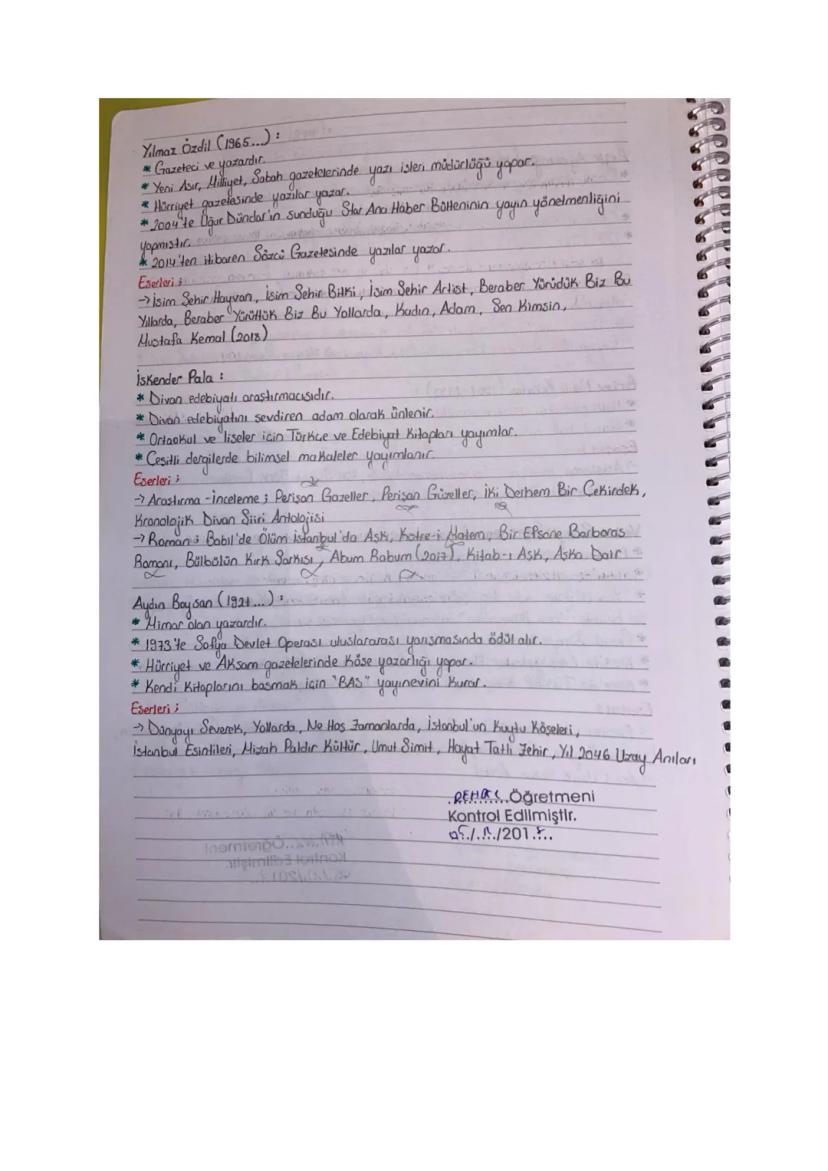 Yılmaz Özdil (1965...) :
* Gazeteci ve yazardır.
* Yeni Asır, Milliyet, Sabah gazetelerinde yazı işleri müdürlüğü yapar.
* Hürriyet gazetesinde yazılar yazar.
* 2004'te Uğur Dündar'ın sunduğu Star Ana Haber Bülteninin yayın yönetmenliğini
yapmıştır.
* 2014'ten itibaren Sözcü Gazetesinde yazılar yazar.
Eserleri :
→ İsim Şehir Hayvan, İsim Şehir Bitki, İsim Şehir Artist, Beraber Yürüdük Biz Bu
Yıllarda, Beraber Yürüttük Biz Bu Yollarda, Kadın, Adam, Sen Kimsin,
Mustafa Kemal (2018)
İskender Pala :
* Divan edebiyatı araştırmacısıdır.
* Divan edebiyatını sevdiren adam olarak ünlenir.
* Ortaokul ve liseler için Türkçe ve Edebiyat Kitapları yayımlar.
* Çeşitli dergilerde bilimsel makaleler yayımlanır.
Eserleri :
→ Araştırma - İnceleme : Perişan Gazeller, Perişan Güzeller, İki Derhem Bir Çekirdek,
Kronolojik Divan Şiiri Antolojisi
→ Roman : Babil'de Ölüm İstanbul'da Aşk, Katre-i Matem, Bir Efsane Barbaros
Romanı, Bülbülün Kırk Şarkısı, Abum Rabum (2017), Kitab-ı Aşk, Aşka Dair
Aydın Boysan (1921...) :
* Mimar olan yazardır.
* 1973'te Sofya Devlet Operası uluslararası yarışmasında ödül alır.
* Hürriyet ve Akşam gazetelerinde köşe yazarlığı yapar.
* Kendi Kitaplarını basmak için "BAS" yayınevini kurar.
Eserleri :
→ Dünyayı Severek, Yollarda, Ne Hoş Zamanlarda, İstanbul'un Kuytu Köşeleri,
İstanbul Esintileri, Mizah Paldır Kültür, Umut Simit, Hayat Tatlı Zehir, Yıl 2046 Uzay Anıları
Öğretmeni
Kontrol Edilmiştir.